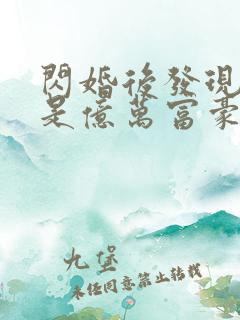 閃婚後發現
是億萬富豪
九堡
未经同意禁止转载